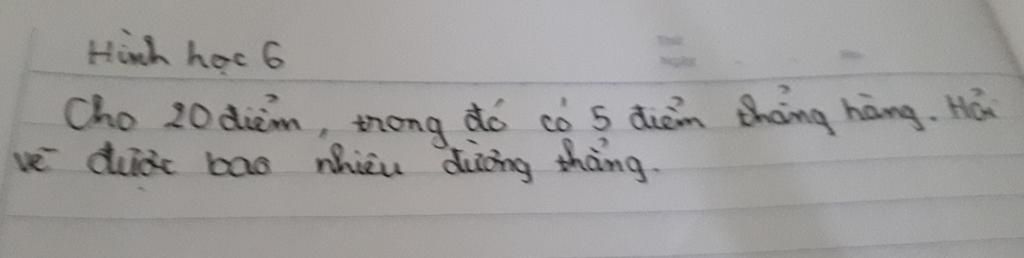 Hình học 6
Cho 20 điểm, trong đó có 5 điểm thẳng hàng. Hỏi
vẽ được bao nhiêu đường thẳng.